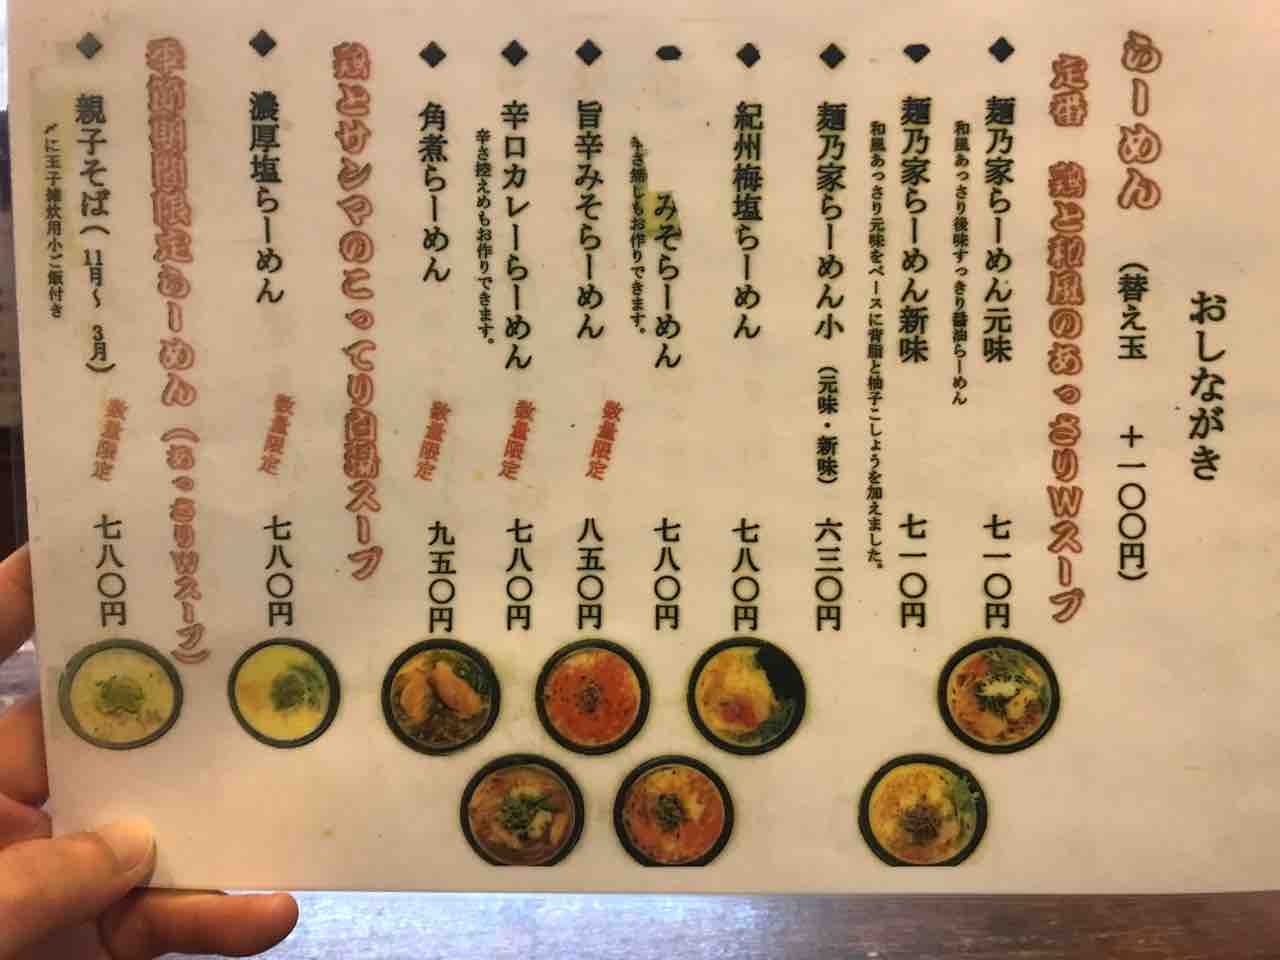 おしながき
らーめん （替え玉 ＋一〇〇円）
定番 鶏と和風のあっさりWスープ
◆ 麺乃家らーめん元味 七一〇円
和風あっさり後味すっきり醤油らーめん
麺乃家らーめん新味 七一〇円
和風あっさり元味をベースに背脂と柚子こしょうを加えました。
◆ 麺乃家らーめん小（元味・新味） 六三〇円
◆ 紀州梅塩らーめん 七八〇円
みそらーめん 七八〇円
辛さ無しもお作りできます。
◆ 旨辛みそらーめん 数量限定 八五〇円
◆ 辛口カレーらーめん 数量限定 七八〇円
辛さ控えめもお作りできます。
◆ 角煮らーめん 数量限定 九五〇円
鶏とサンマのこってり白湯スープ
◆ 濃厚塩らーめん 数量限定 七八〇円
季節期間限定らーめん（あっさりWスープ）
◆ 親子そば（11月～3月） 数量限定 七八〇円
に玉子雑炊用小ご飯付き